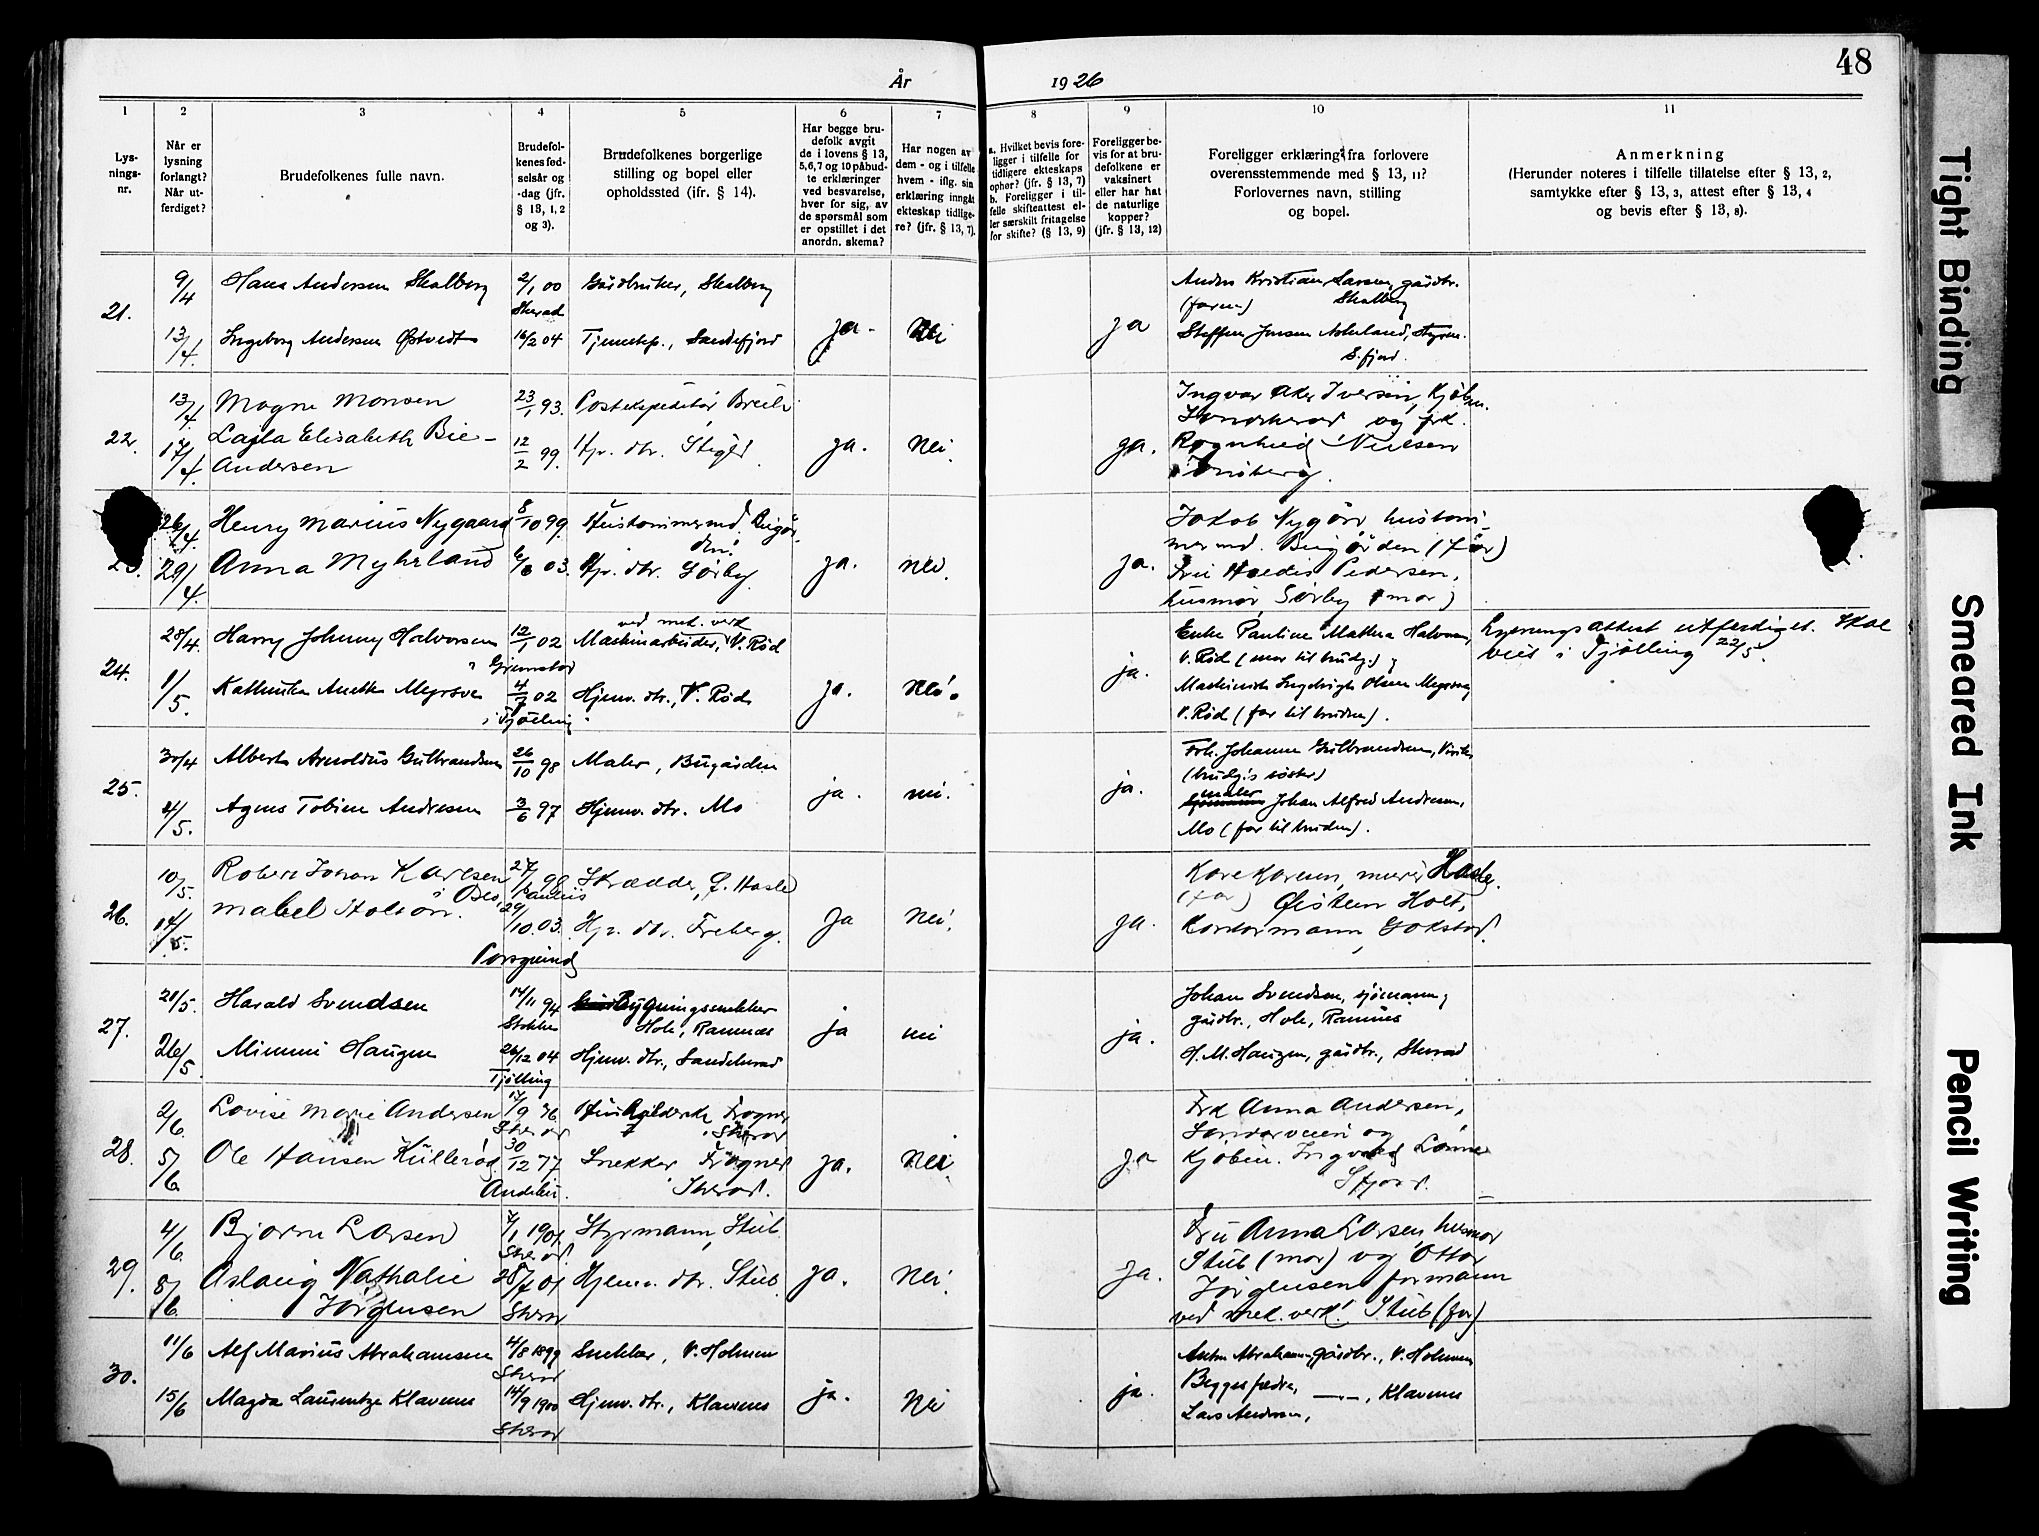 48
År 1926
1 2 3 4 5 6 7 8 9 10 11
Lys-
nings-
nr.
Når er
lysning
forlangt?
Når ut-
ferdiget?
Brudefolkenes fulle navn.
Brudefol-
kenes fød-
selsår og
-dag (jfr.
§ 13, 1, 2
og 3).
Brudefolkenes borgerlige
stilling og bopel eller
opholdssted (ifr. § 14).
Har begge bru-
defolk avgit
de i lovens § 13,
5,6,7 og 10 påbud-
te erklæringer
ved besvarelse,
hver for sig, av
de spørsmål som
er opstillet i det
anordn. skema?
Har nogen av
dem - og i tilfelle
hvem - iflg. sin
erklæring inngåt
ekteskap tidlige-
re? (jfr. § 13, 7).
a. Hvilket bevis fore-
ligger i tilfelle for
tidligere ekteskaps
ophør? (jfr. § 13, 7)
b. Foreligger i til-
felle skifteattest el-
ler særskilt fritagelse
for skifte? (§ 13, 9)
Foreligger be-
vis for at bru-
defolkene er
vaksinert
eller har hat
de naturlige
kopper?
(jfr. § 13, 12)
Foreligger erklæring fra forlovere
overensstemmende med § 13, 11?
Forlovernes navn, stilling
og bopel.
Anmerkning
(Herunder noteres i tilfelle tillatelse efter § 13, 2,
samtykke efter § 13, 3, attest efter § 13, 4
og bevis efter § 13, 8).
21.
9/4 Hans Andersen Skalberg 2/1 00 Gårdbruker, Skalberg
13/4 Ingeborg Andersen Østvedt 16/2 04 Sandefjord
ja. Nei ja
Anders Kristian Larsen, gårdbr.
(faren) Skalberg
Steffen Jensen
S. fjord.
22.
13/4 Magne Monsen 23/1 93. Postekspeditør
17/4 Lajla Elisabeth Bie-
Andersen 12/2 99. Hjv. dtr.
ja. Nei. ja.
Ingvar Aker Iversen, Kjøbm.
og frk.
Ragnhild Nielsen
Tønsberg.
26/4 Henry Marius Nygaard 8/10 99. Hustømmermd.
29/4 Anna Myhrland 03. Hjv. dtr. Sørby
ja. nei. ja.
Jakob Nygård hustøm-
mermd. Bugården (far)
Fru Pedersen,
husmor, Sørby (mor)
24.
28/4 Harry Johnny Halvorsen 12/1 02 Maskinarbeider, V. Rød
ved mek. verk
i Grimstad
1/5. 4/7 02 Hjemv. dtr., V. Rød
i Tjølling
ja. Nei. ja.
Enke Pauline Mathea Halvorsen,
V. Rød (mor til brudg.)
Maskinist Olsen
V. Rød (far til bruden).
Lysningsattest utferdiget. Skal
vies i Tjølling 22/5.
25.
30/4 Albert Arnoldus Gulbrandsen 26/10 98 Maler, Bugården
4/5. Agnes Tobine Andresen 3/6 97 Hjemv. dtr. Mo
ja. nei. ja.
Frk. Johanne Gulbrandsen,
(brudg.s søster)
maler
Johan Alfred Andresen,
Mo (far til bruden).
26.
10/5. Robert Johan Karlsen 27/1 98 Skrædder, Ø. Hasle
i Oslo, Paulus
14/5. Mabel 29/10 03. Hjv. dtr. Freberg.
Porsgrund
Ja Nei. ja.
murer Hasle.
(far) Øistein Holt,
Kontormann, Gokstad.
27.
21/5 Harald Svendsen 14/11 94 Bygningssnekker
Stokke Hole, Ramnes
26/5 Mimmi Haugen 26/12 04 Hjemv. dtr., Sandeherad
Tjølling
ja nei ja.
Johan Svendsen, sjømann,
gårdbr., Hole, Ramnes
H. M. Haugen, gårdbr., Sherad
28.
2/6. Lovise Marie Andersen 17/9 76 Frogner
Sherad Sherad
5/6 Ole Hansen Kullerød 30/12 77 Snekker Frogner
Andebu. Sherad.
Ja. Nei ja
Frk Anna Andersen,
og
Kjøbm. Ingvald
Sfjord.
29.
4/6 Bjarne Larsen 7/1 1901. Styrmann, Stub
Sherad.
8/6 Aslaug Nathalie 28/7 01 Hjemv. dtr. Stub.
Jørgensen Sherad
Ja. Nei. Ja.
Fru Anna Larsen, husmor
Stub (mor) og Ottar
Jørgensen formann
ved mek. verk. Stub (far)
30.
11/6 Alf Marius Abrahamsen 4/8 1899 Snekker, V. Holmen
Sherad
15/6 Magda Laurentze Klavenes 14/9 1900 Hjemv. dtr., Klavenes
Sherad
ja. Nei ja.
Anton Abrahamsen gårdbr., V. Holmen
Begges fædre,
Lars Andersen, —"—, Klavenes
Tight Binding
Smeared Ink
Pencil Writing